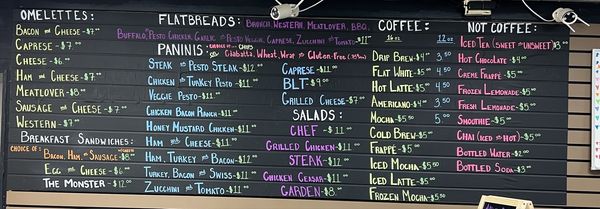 OMELETTES:
BACON AND CHEESE-$7.
CAPRESE-$7.
CHEESE-$6.
HAM AND CHEESE-$7.
MEATLOVER-$8.
SAUSAGE AND CHEESE-$7.
WESTERN-$7.
BREAKFAST SANDWICHES:
CHOICE OF: BACON, HAM, OR SAUSAGE-$8.
EGG AND CHEESE-$6.
THE MONSTER-$12.
FLATBREADS: BRUNCH, WESTERN, MEATLOVER, BBQ,
BUFFALO, PESTO CHICKEN, GARLIC AND PESTO VEGGIE, CAPRESE, ZUCCHINI AND TOMATO-$11
PANINIS: CHOICE OF CHIPS
CIABATTA, WHEAT, WRAP OR GLUTEN-FREE
STEAK AND PESTO STEAK-$12.
CHICKEN AND TURKEY PESTO-$11.
VEGGIE PESTO-$11.
CHICKEN BACON RANCH-$11.
HONEY MUSTARD CHICKEN-$11.
HAM AND CHEESE-$11.
HAM, TURKEY AND BACON-$12.
TURKEY, BACON AND SWISS-$11.
ZUCCHINI AND TOMATO-$11.
CAPRESE-$11.
BLT-$9.
GRILLED CHEESE-$7.
SALADS:
CHEF - $11.
GRILLED CHICKEN-$11.
STEAK-$12.
CHICKEN CEASAR-$11.
GARDEN-$8.
COFFEE:
12 OZ
DRIP BREW-$4. 3.50
FLAT WHITE-$5 4.50
HOT LATTE-$5 4.50
AMERICANO-$4 3.50
MOCHA-$5.50 5.00
COLD BREW-$5.
FRAPPÉ-$5.
ICED MOCHA-$5.50
ICED LATTE-$5.
FROZEN MOCHA-$5.50
NOT COFFEE:
ICED TEA (SWEET OR UNSWEET)-$3.
HOT CHOCOLATE-$4.
CREME FRAPPÉ-$5.
FROZEN LEMONADE-$5.
FRESH LEMONADE-$5.
SMOOTHIE-$5.
CHAI (ICED OR HOT)-$5.
BOTTLED WATER-$2.
BOTTLED SODA-$3.